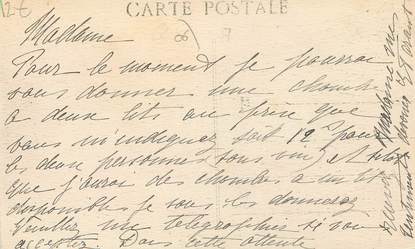 12€
CARTE POSTALE
Madame
Pour le moment je pourrai
vous donner une chambre
a deux lits au prix que
vous m'indiquez soit 12 pour
les deux personnes (sans vin) et sitot
que j'aurai des chambres a un lit
disponible je vous les donnerai
Veuillez me telegraphier si vous
acceptez. Dans cette attente
Madame mes